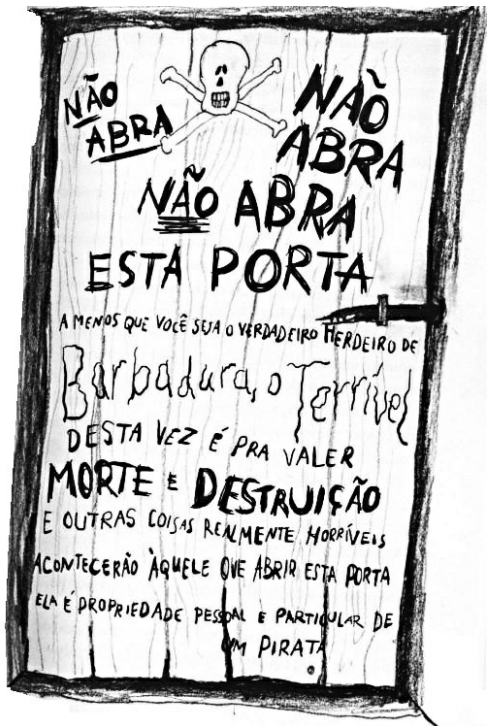 NÃO
ABRA
NÃO
ABRA
NÃO ABRA
ESTA PORTA
A MENOS QUE VOCÊ SEJA O VERDADEIRO HERDEIRO DE
Barbadura, o Terrível
DESTA VEZ É PRA VALER
MORTE E DESTRUIÇÃO
E OUTRAS COISAS REALMENTE HORRÍVEIS
ACONTECERÃO ÀQUELE QUE ABRIR ESTA PORTA
ELA É PROPRIEDADE PESSOAL E PARTICULAR DE
UM PIRATA